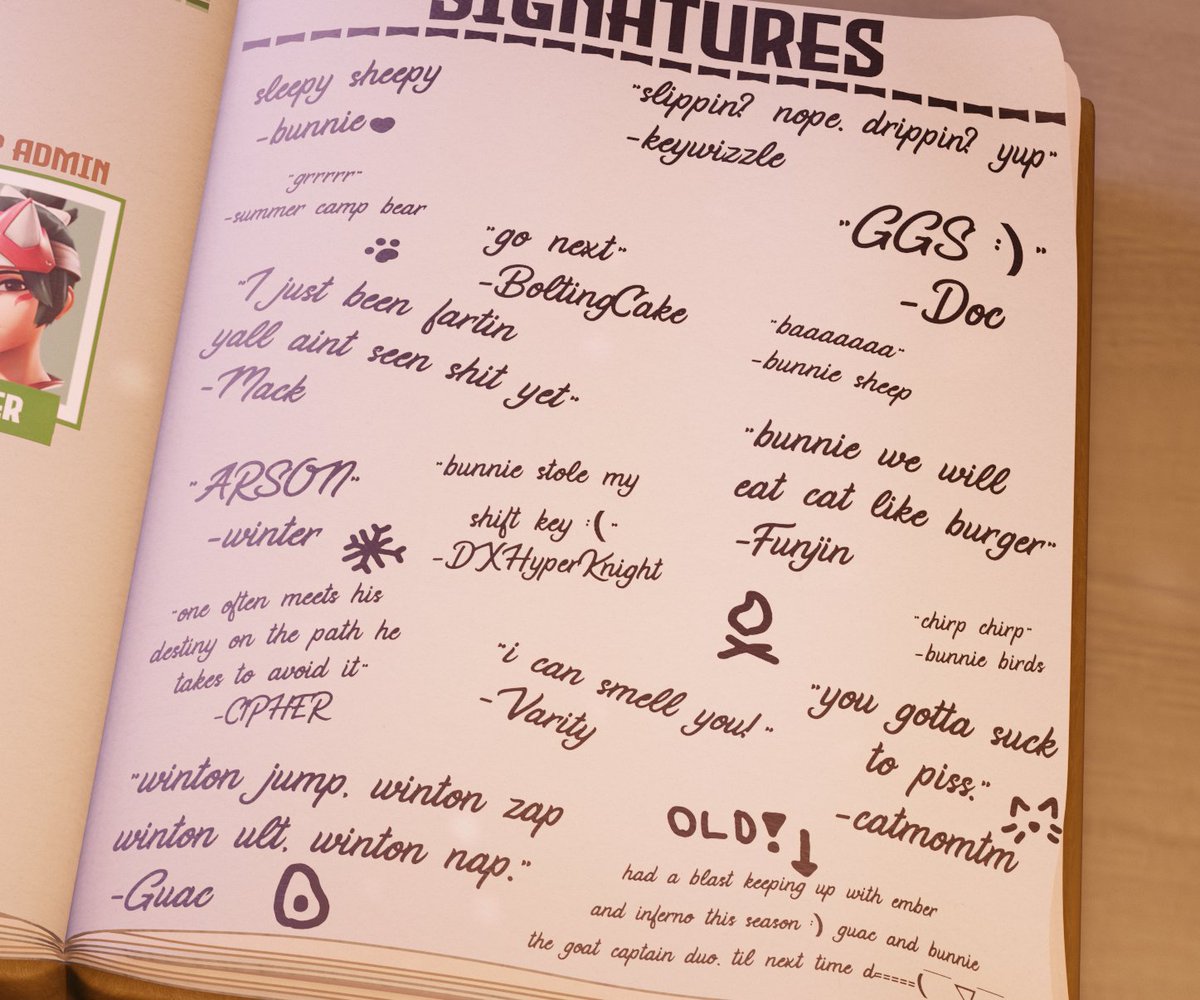 SIGNATURES
ADMIN
ER
sleepy sheepy
-bunnie
"slippin? nope. drippin? yup"
-keywizzle
"grrrrr"
-summer camp bear
"go next"
-BoltingCake
"GGS :)"
-Doc
"I just been fartin
yall aint seen shit yet"
-Mack
"baaaaaaa"
-bunnie sheep
"ARSON"
-winter
"bunnie stole my
shift key :("
-DXHyperKnight
"bunnie we will
eat cat like burger"
-Funjin
"one often meets his
destiny on the path he
takes to avoid it"
-CIPHER
"i can smell you!"
-Varity
"chirp chirp"
-bunnie birds
"you gotta suck
to piss."
-catmomtm
"winton jump. winton zap
winton ult. winton nap."
-Guac
OLD!
had a blast keeping up with ember
and inferno this season :) guac and bunnie
the goat captain duo. til next time